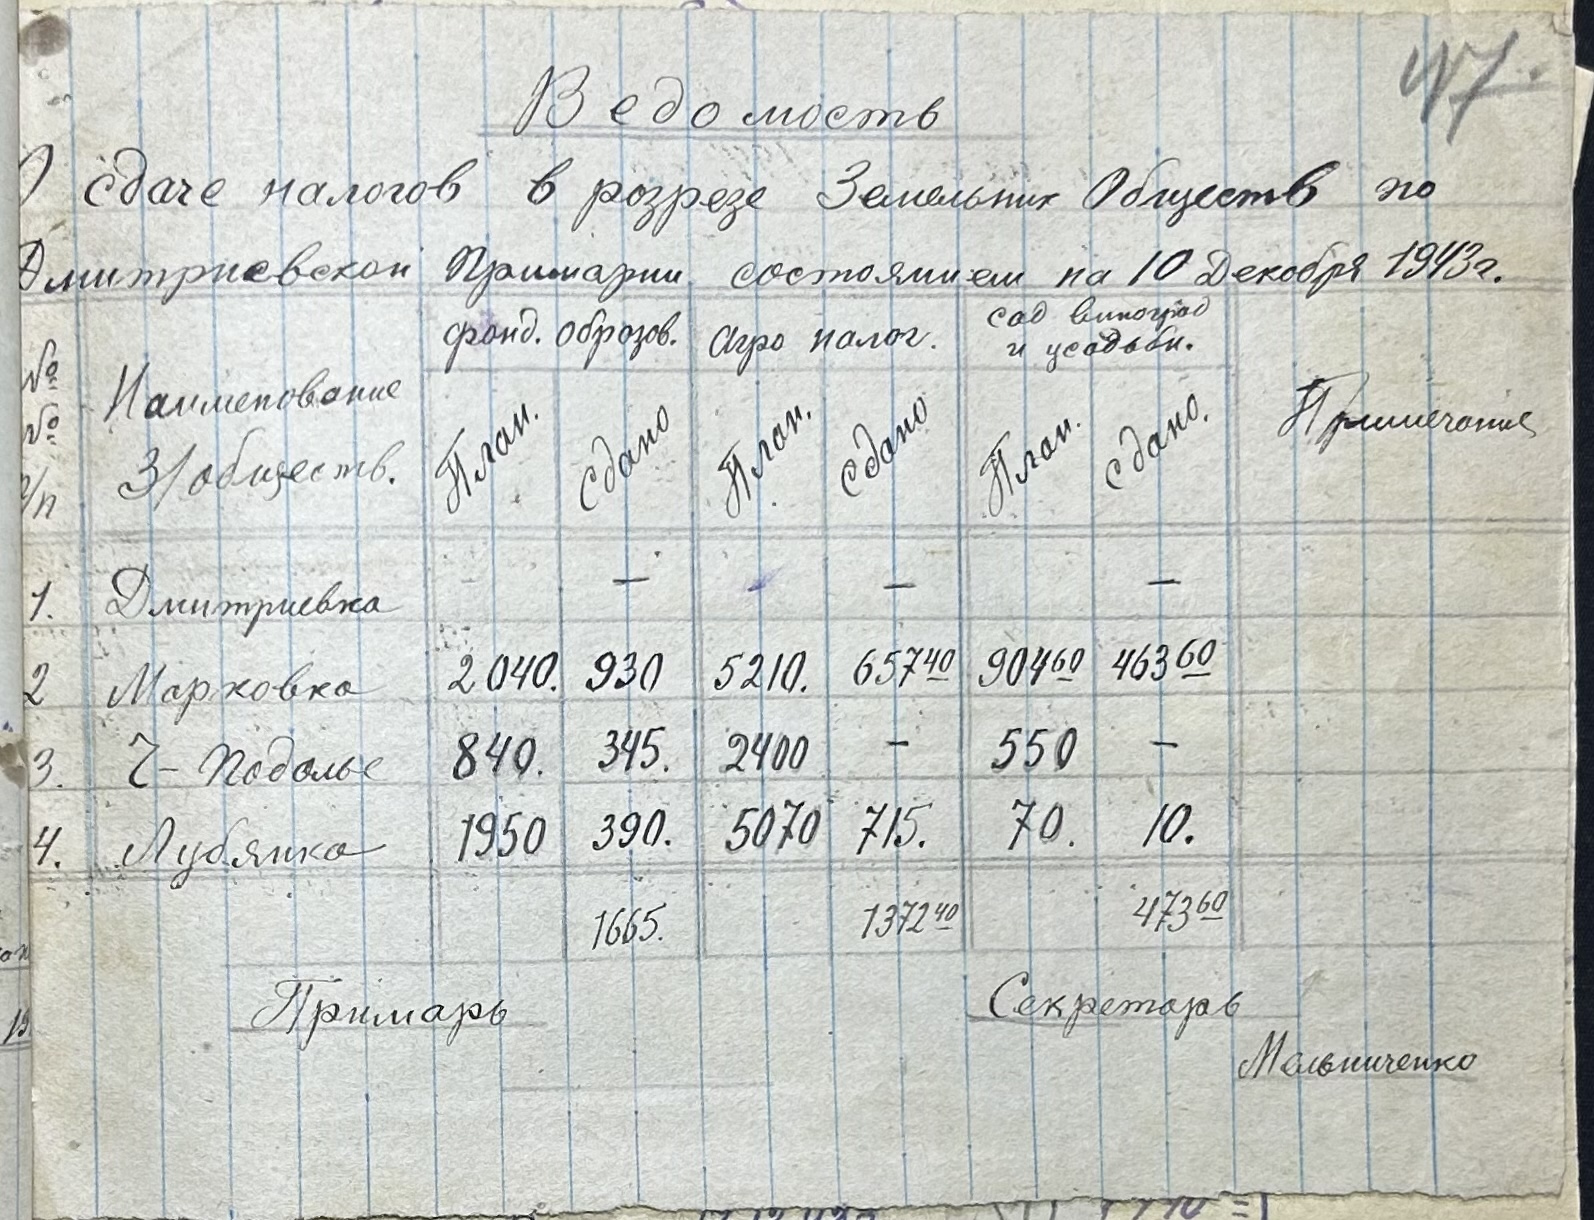 47.
Ведомость
О сдаче налогов в розрезе Земельних Обществ по
Дмитриевской Примарии состоянием на 10 Декобря 1943г.
№ № п/п Наименование З/обществ. фонд. образов. Агро налог. сад виноград и усадьбы. Примечание
План. сдано План. сдано План. сдано.
1. Дмитриевка — — —
2 Марковка 2040. 930 5210. 657 40 904 60 463 60
3. Ч-Подолье 840. 345. 2400 — 550 —
4. Лубянка 1950 390. 5070 715. 70. 10.
1665. 1372 40 473 60
Примарь Секретарь
Мельниченко